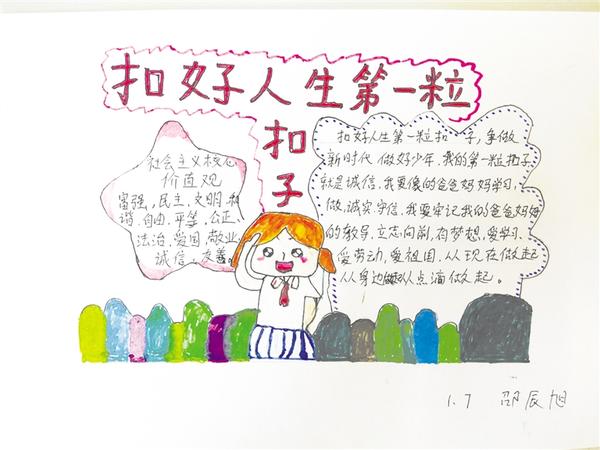 扣好人生第一粒
扣
子
社会主义核心
价值观
富强,民主,文明,和
谐,自由,平等,公正、
法治,爱国,敬业
诚信,友善。
扣好人生第一粒扣子,争做
新时代 做好少年。我的第一粒扣子
就是诚信。我要像的爸爸妈妈学习,
做诚实守信.我要牢记我的爸爸妈妈
的教导,立志向前,有梦想,爱学习、
爱劳动,爱祖国,从现在做起
从身边 从点滴做起。
1.7 邵辰旭